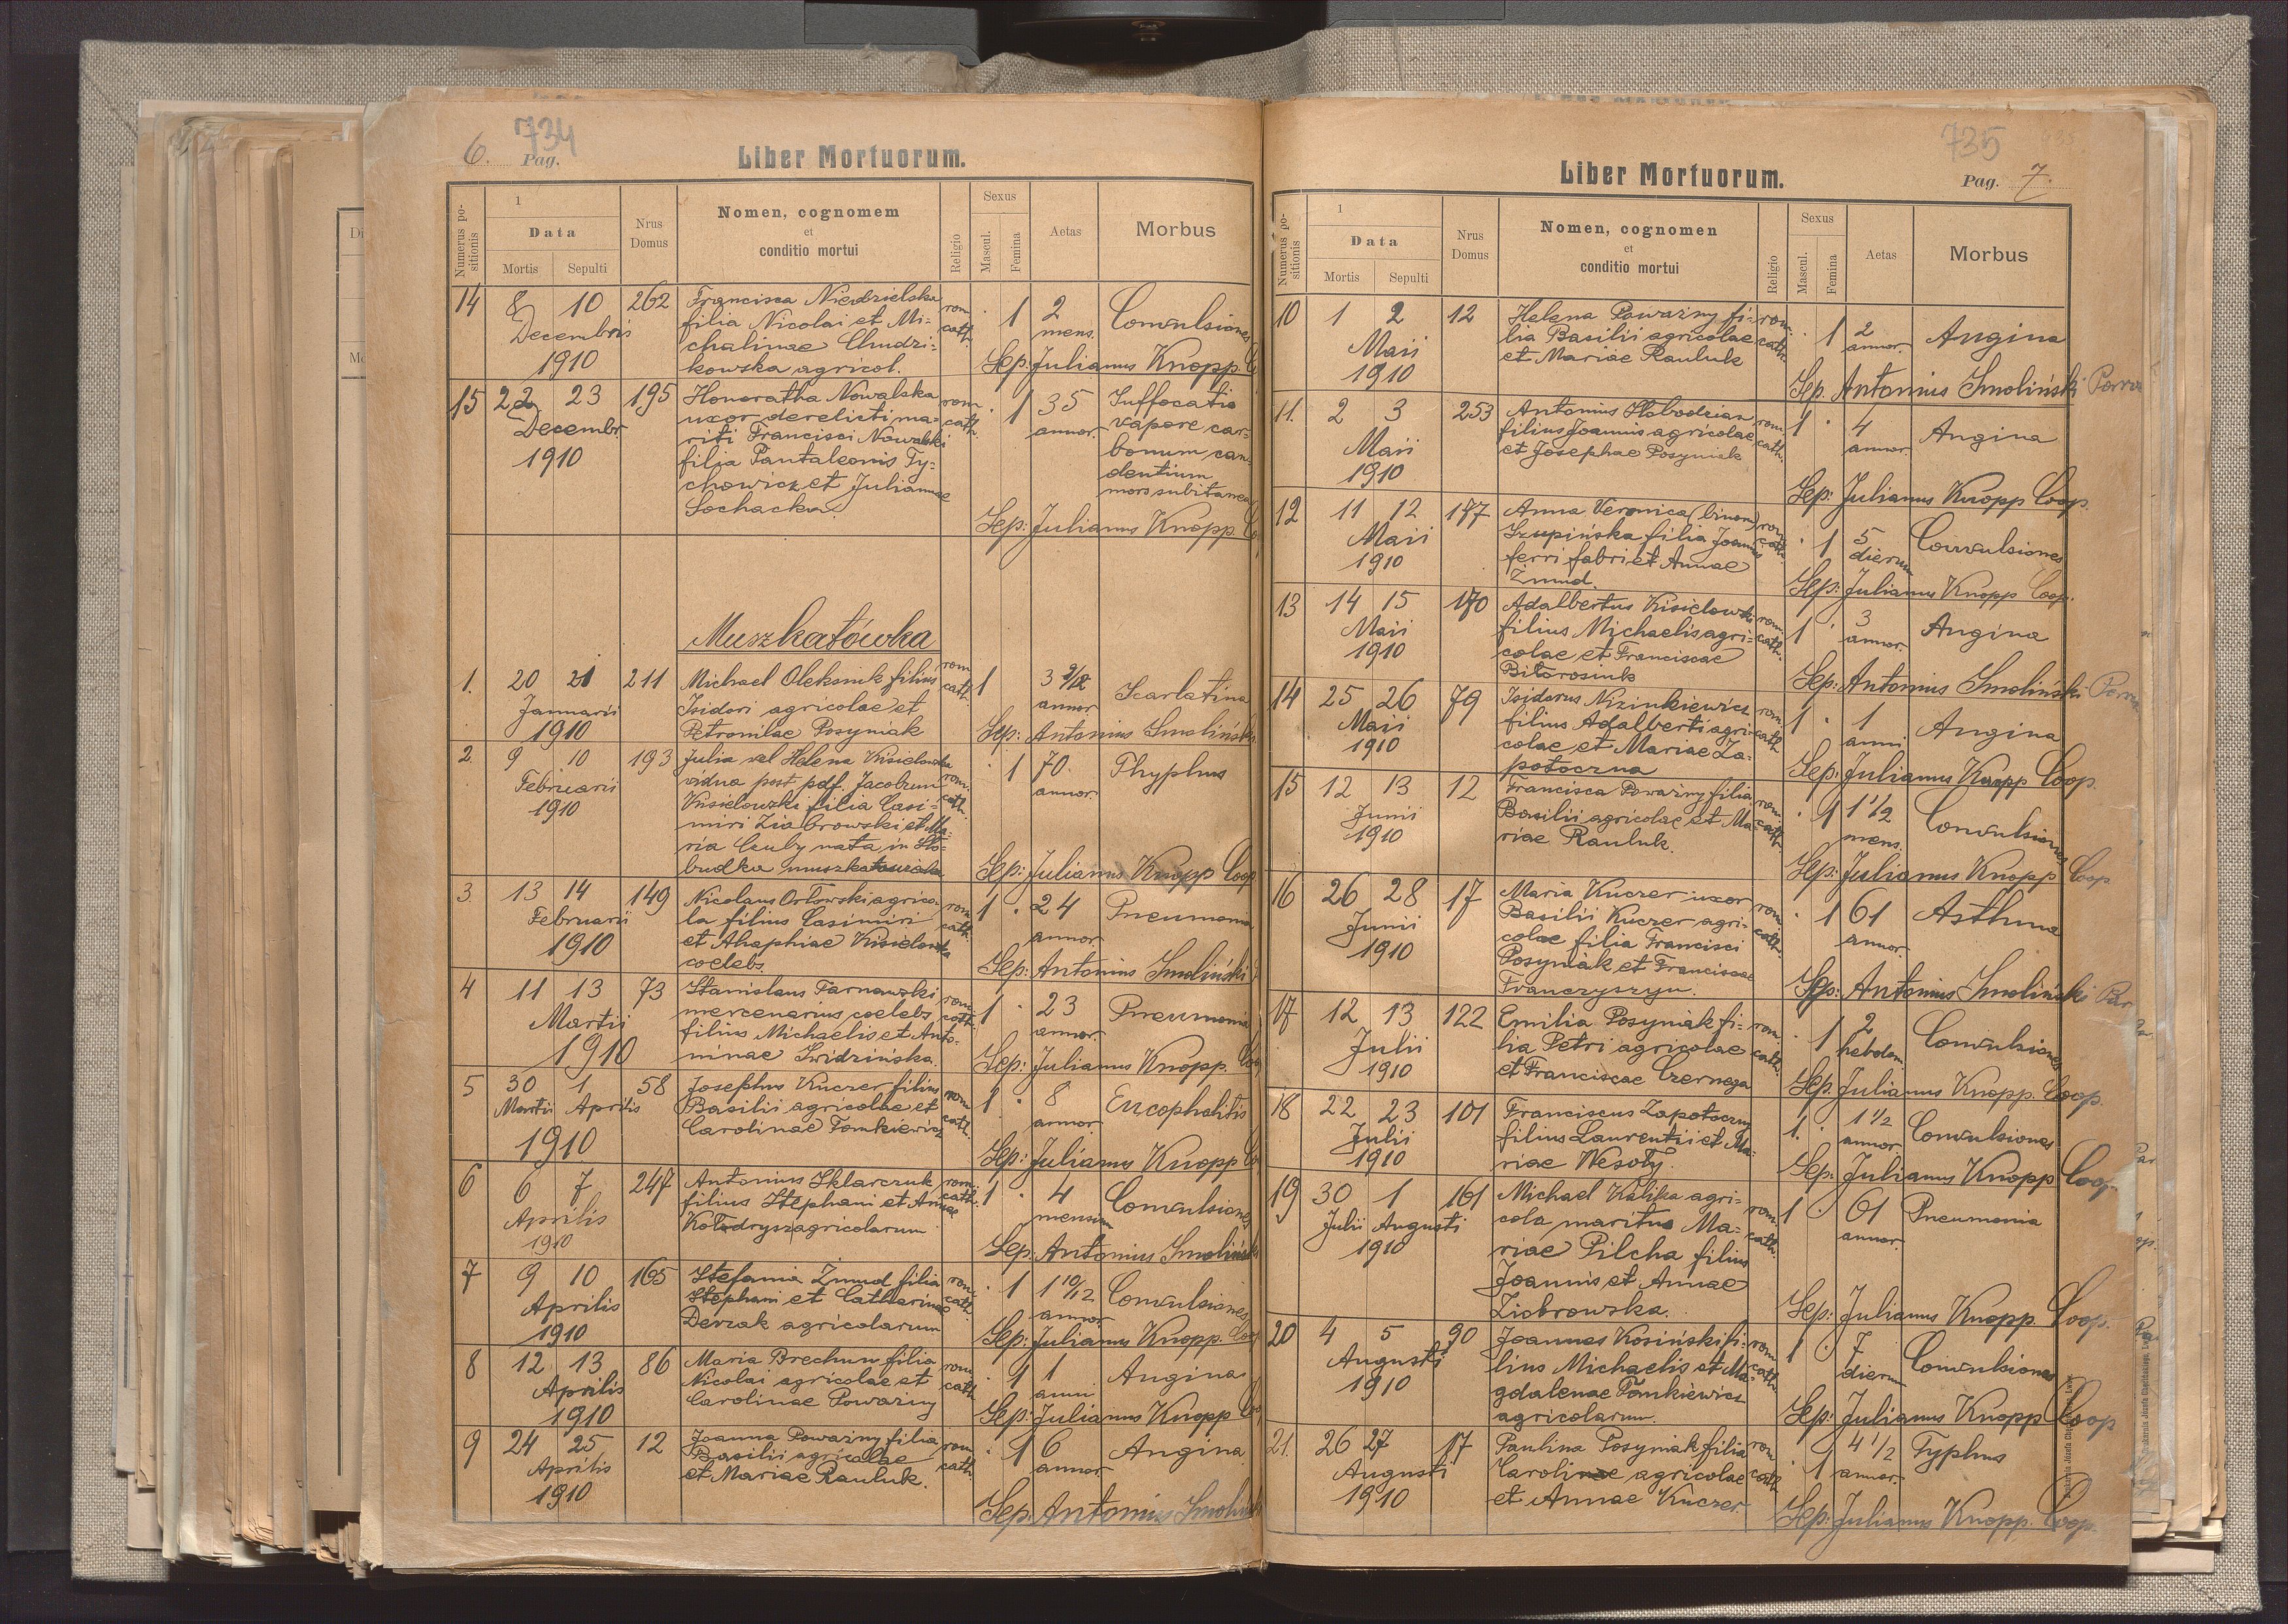 6. Pag. 734
Liber Mortuorum.
Numerus positionis
1
Data
Mortis Sepulti
Nrus Domus
Nomen, cognomem
et
conditio mortui
Religio
Sexus
Mascul. Femina
Aetas
Morbus
14 8 10 262 Francisca Niedzielska rom. 1 2 Convulsiones
Decembris filia Nicolai et Mi- cath. mens.
1910 chalinae Chudzi-
kowska agricol. Sep: Julianus Knopp
15 22 23 195 Honoratha Nowalska rom. 1 35 Suffocatio
Decembr. uxor derelicti ma- cath. annor. vapore car-
1910 riti Francisci Nowalski bonum can-
filia Pantaleonis Ty- dentium
chowicz et Julianae mors subitanea
Sochacka. Sep: Julianus Knopp.
Muszkatówka
1. 20 21 211 Michael Oleksiuk filius rom. 1 3 9/12 Scarlatina
Januarii Isidori agricolae et cath. annor
1910 Petronilae Posyniak Sep: Antonius Smoliński
2. 9 10 193 Julia vel Helena Kisielowska 1 70. Thyphus
Februarii vidua post pdf. Jacobum rom. annor.
1910 Kisielowski filia Casi- cath.
miri Ziobrowski et Ma-
ria Czuby nata in Sło-
budka Sep: Julianus Knopp Coop
3. 13 14 149 Nicolaus Orłowski agrico- rom. 1 24 Pneumonia
Februarii la filius Casimiri cath. annor.
1910 et Ahaphiae Kisielowska
coelebs. Sep: Antonius Smoliński
4 11 13 73 Stanislaus Tarnawski rom. 1 23 Pneumonia
Martii mercenarius coelebs cath. annor.
1910 filius Michaelis et Anto-
ninae Swidzińska. Sep: Julianus Knopp.
5 30 1 58 Josephus Kuczer filius rom. 1 8 Encephalitis
Martii Aprilis Basilii agricolae et cath. annor.
1910 Carolinae Tomkiewicz
Sep: Julianus Knopp
6 6 7 247 Antonius Sklarczuk rom. 1 4 Convulsiones
Aprilis filius Stephani et Annae cath. mensium
1910 Kołodrysz agricolarum
Sep: Antonius Smoliński
7 9 10 165 Stefania Zmud filia rom. 1 1 10/12 Convulsiones
Aprilis Stephani et Catharinae cath. annor.
1910 Derzak agricolarum Sep: Julianus Knopp.
8 12 13 86 Maria Brechun filia rom. 1 1 Angina
Aprilis Nicolai agricolae et cath. anni
1910 Carolinae Poważny Sep: Julianus Knopp
9 24 25 12 Joanna Poważny filia rom. 1 6 Angina
Aprilis Basilii agricolae cath. annor.
1910 et Mariae Rauluk.
Sep: Antonius Smoliński
735
Liber Mortuorum.
Pag. 7.
Numerus positionis
1
Data
Mortis Sepulti
Nrus Domus
Nomen, cognomen
et
conditio mortui
Religio
Sexus
Mascul. Femina
Aetas
Morbus
10 1 2 12 Helena Poważny fi- rom. 1 2 Angina
Maii lia Basilii agricolae cath. annor.
1910 et Mariae Rauluk
Sep. Antonius Smoliński
11. 2 3 253 Antonius Słobodzian rom. 1 4 Angina
Maii filius Joannis agricolae cath. annor.
1910 et Josephae Posyniak
Sep: Julianus Knopp Coop.
12 11 12 187 Anna Veronica (binom) rom. 1 5 Convulsiones
Maii Szupińska filia Joannis cath. dierum
1910 ferri fabri et Annae
Zmud. Sep: Julianus Knopp Coop.
13 14 15 170 Adalbertus Kisielowski rom. 1 3 Angina
Maii filius Michaelis agri- cath. annor.
1910 colae et Franciscae
Biłorosiuk Sep: Antonius Smoliński
14 25 26 79 Isidorus Nizinkiewicz rom. 1 1 Angina
Maii filius Adalberti agri- cath. anni
1910 colae et Mariae Za-
potoczna Sep: Julianus Knopp Coop.
15 12 13 12 Francisca Poważny filia rom. 1 1 1/2 Convulsiones
Junii Basilii agricolae et Ma- cath. mens.
1910 riae Rauluk.
Sep: Julianus Knopp Coop
16 26 28 17 Maria Kuczer uxor rom. 1 61 Asthma
Junii Basilii Kuczer agri- cath. annor.
1910 colae filia Francisci
Posyniak et Franciscae
Franczyszyn. Sep: Antonius Smoliński Par
17 12 13 122 Emilia Posyniak fi- rom. 1 2 Convulsiones
Julii lia Petri agricolae cath. hebdom.
1910 et Franciscae Czernega
Sep: Julianus Knopp. Coop.
18 22 23 101 Franciscus Zapotoczny 1. 1 1/2 Convulsiones
Julii filius Laurentii et Ma- annor
1910 riae Wesoły. Sep: Julianus Knopp Coop.
19 30 1 161 Michael Kalifia agri- rom. 1 61 Pneumonia
Julii Augusti cola maritus Ma- cath. annor.
1910 riae Pilcha filius
Joannis et Annae
Ziobrowska. Sep: Julianus Knopp. Coop.
20 4 5 90 Joannes Kosiński fi- rom. 1 7 Convulsiones
Augusti lius Michaelis et Ma- cath. dierum
1910 gdalenae Tomkiewicz
agricolarum. Sep: Julianus Knopp Coop
21. 26 27 17 Paulina Posyniak filia rom. 1 4 1/2 Typhus
Augusti Carolinae agricolae cath. annor.
1910 et Annae Kuczer.
Sep: Julianus Knopp. Coop.